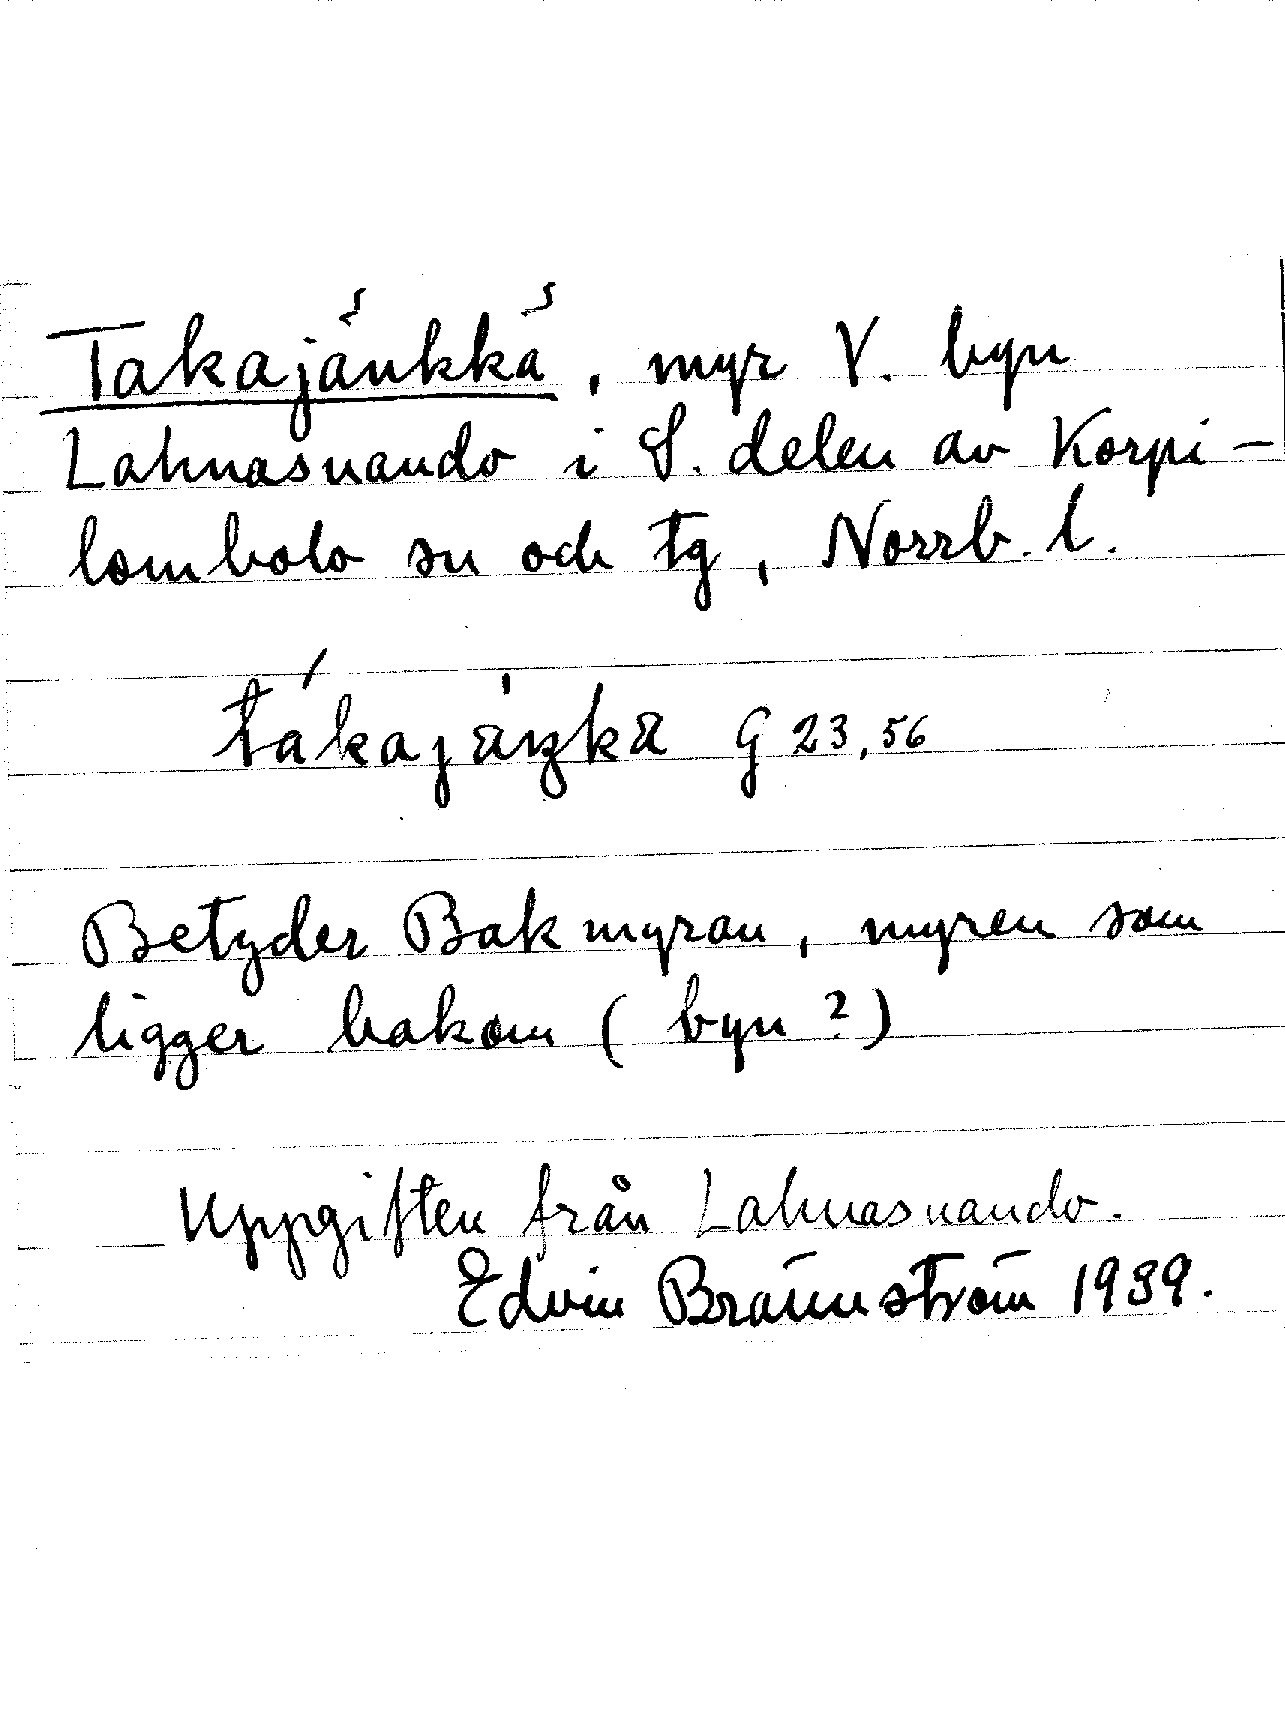 Takajänkkä, myr V. byn
Lahnasuando i S. delen av Korpi-
lombolo sn och tg, Norrb. l.
tákajäŋkä G 23,56
Betyder Bakmyran, myren som
ligger bakom (byn?)
Uppgiften från Lahnasuando.
Edvin Brännström 1939.